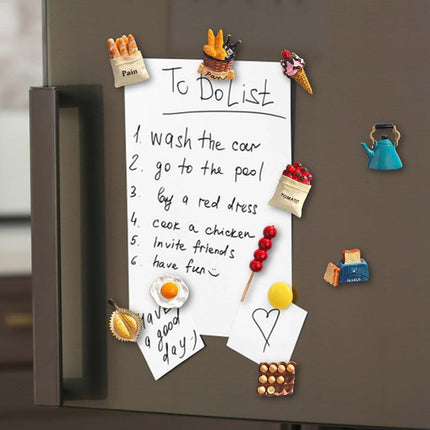 Pain
Pain
To Do List
1. wash the car
2. go to the pool
3. by a red dress
4. cook a chicken
5. invite friends
6. have fun
TOMATO
have
a good
day:)